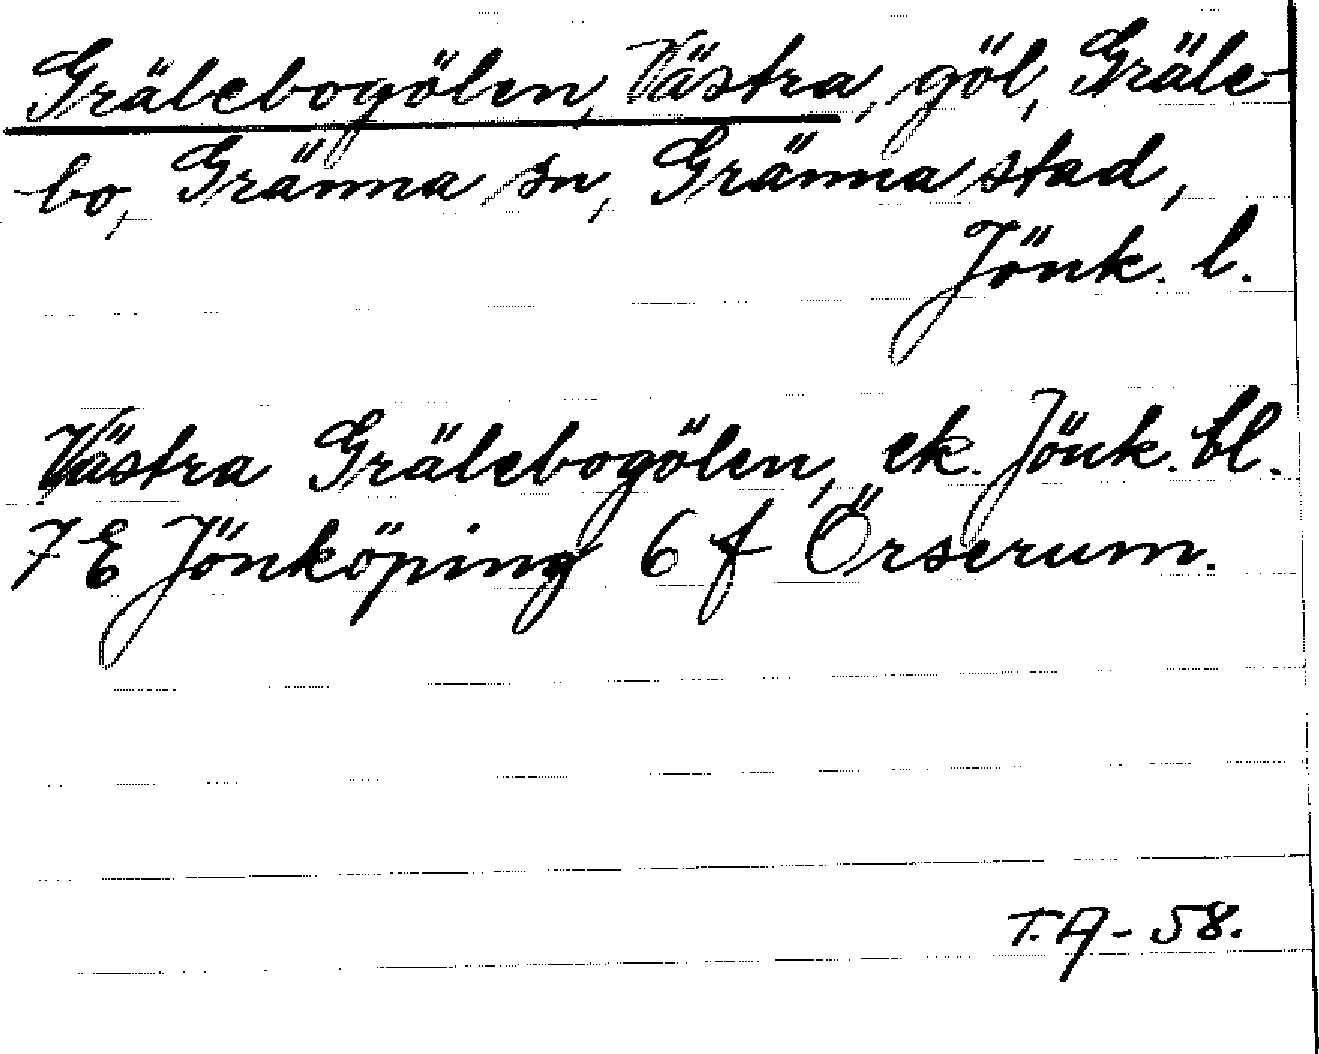 Grälebogölen, Västra, göl, Gräle-
bo, Gränna sn, Gränna stad,
Jönk. l.
Västra Grälebogölen, ek. Jönk. bl.
7 E Jönköping 6 f Örserum.
T.A - 58.